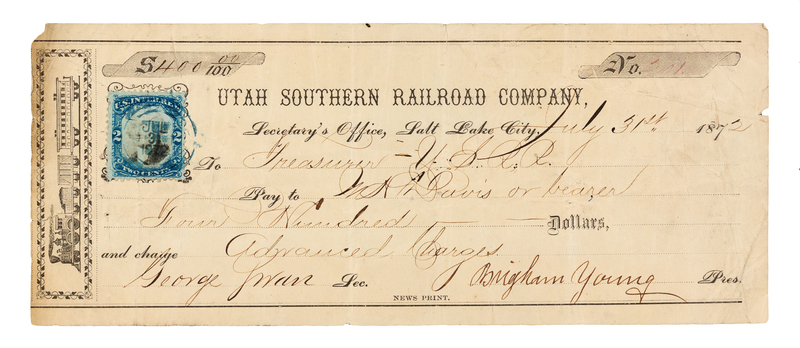 $400 00/100
No.
UTAH SOUTHERN RAILROAD COMPANY,
U.S. INTER. REV.
2 2
TWO CENTS
Secretary's Office, Salt Lake City, July 31st 1872
To Treasurer - U.S.R.R.
Pay to Davis or bearer
Four Hundred Dollars,
and charge Advanced Charges
George Swan Sec. Brigham Young Pres.
NEWS PRINT.